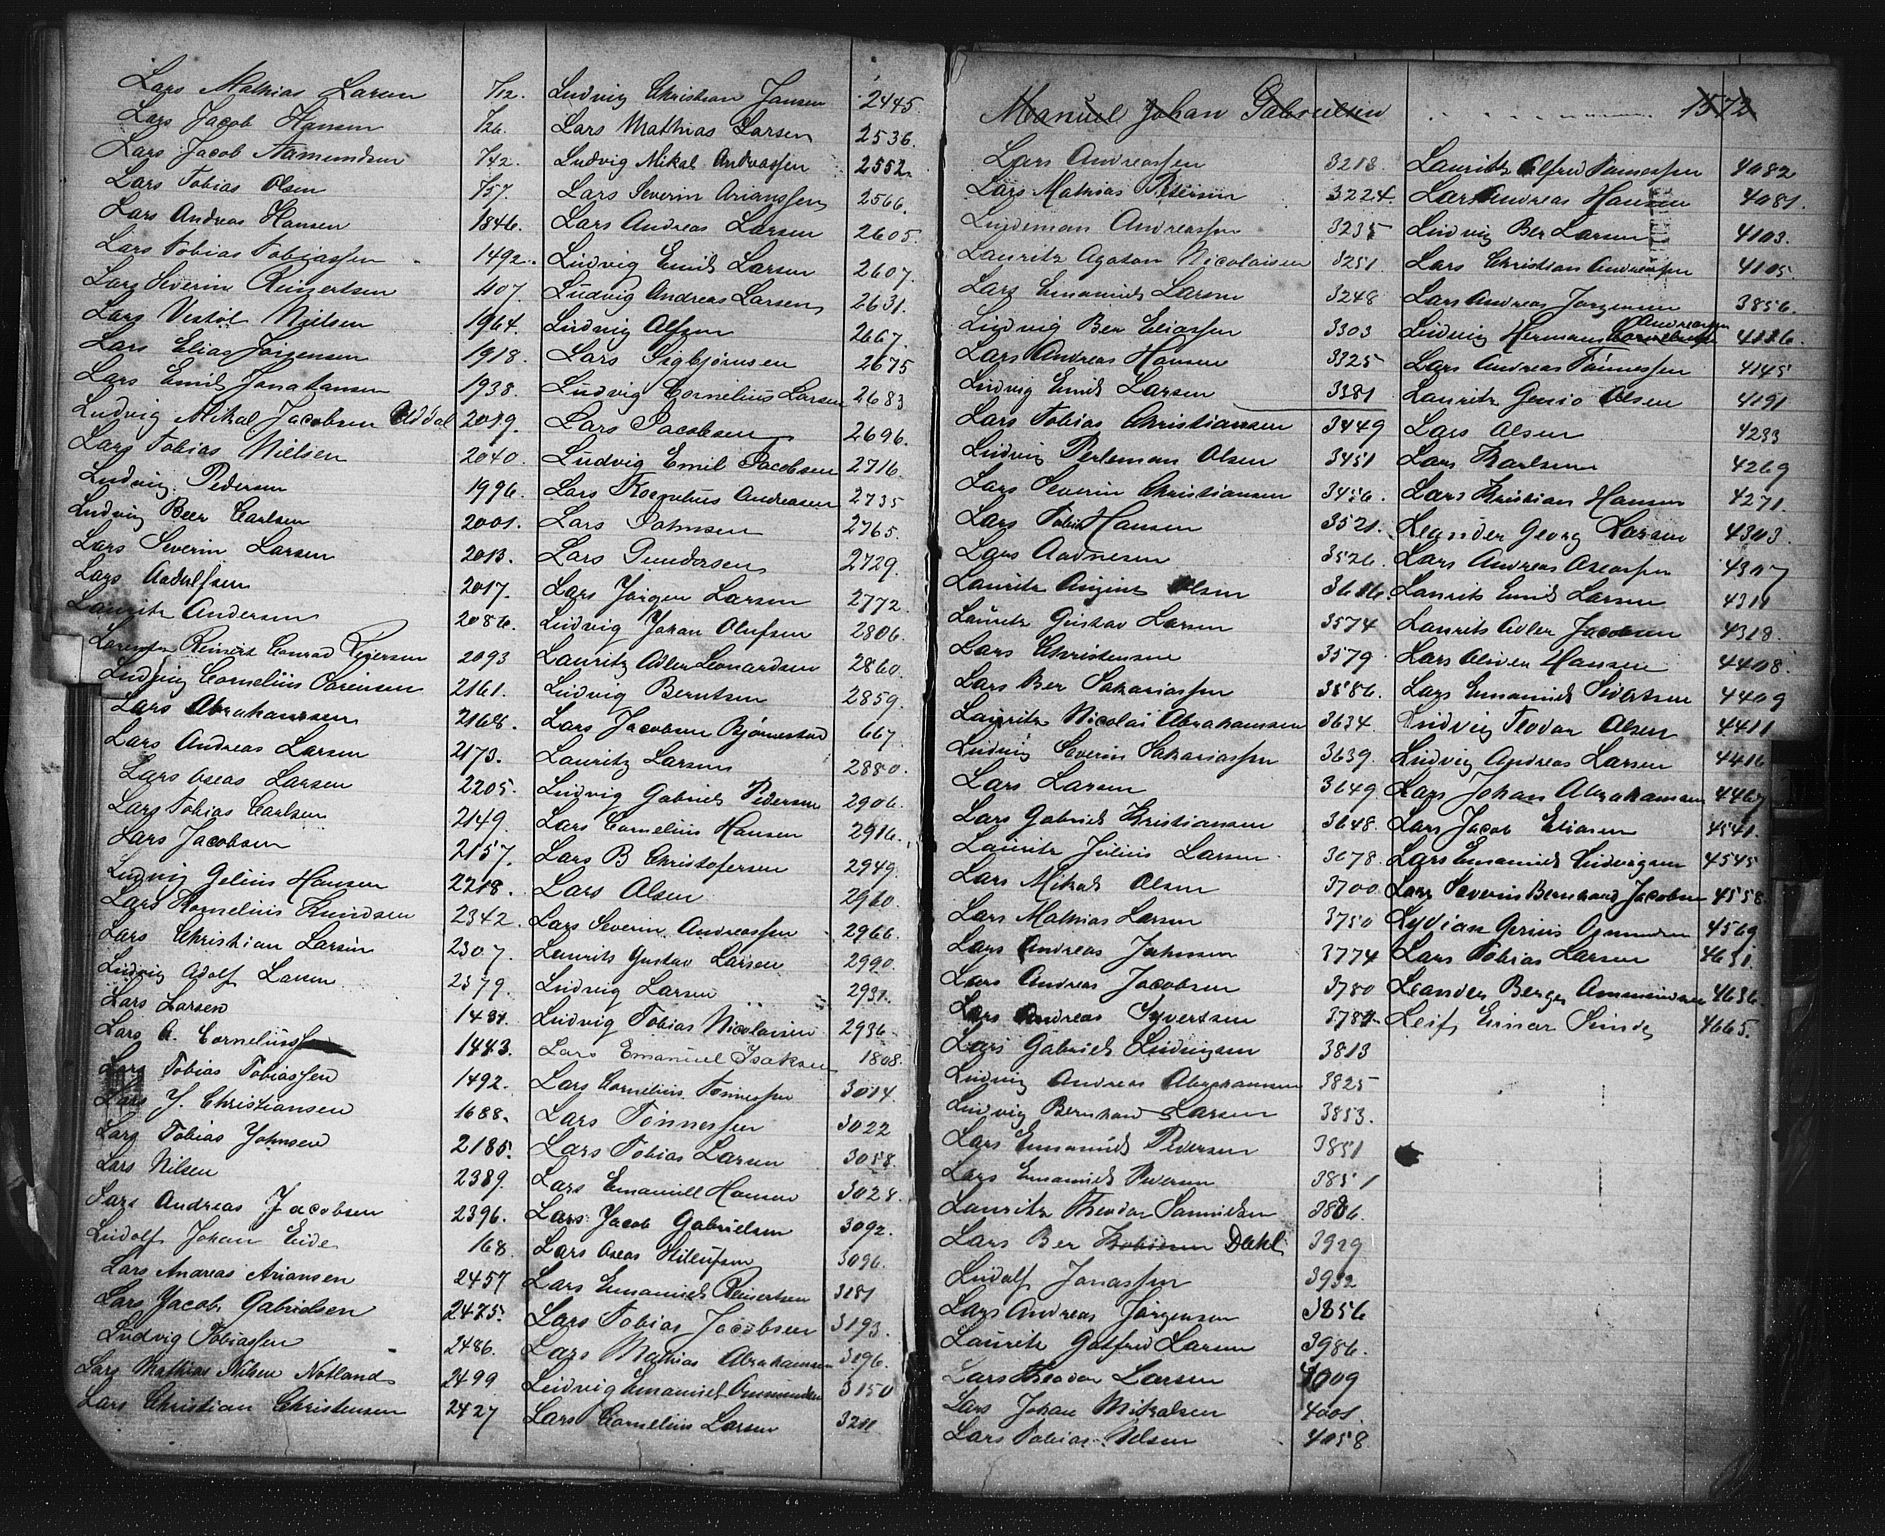 Lars Mathias Larsen 7/12.
Lars Jacob Hansen 7/26.
Lars Jacob Aamundsen 7/42.
Lars Tobias Olsen 7/57.
Lars Andreas Hansen 1846.
Lars Tobias Tobiassen 1492.
Lars Severin Reinertsen 1107.
Lars Vestøl Nielsen 1964.
Lars Elias Jørgensen 1918.
Lars Emil Jonathansen 1938.
Ludvig Mikal Jacobsen Oddal 2019.
Lars Tobias Nielsen 2040.
Ludvig Pedersen 1996.
Ludvig Beer Carlsen 2001.
Lars Severin Larsen 2013.
Lars Aadulfsen 2017.
Lauritz Andersen 2086.
Lorentz Reinert Conrad Reiersen 2093
Ludvig Cornelius Sørensen 2161.
Lars Abrahamsen 2168.
Lars Andreas Larsen 2173.
Lars Oseas Larsen 2205.
Lars Tobias Carlsen 2149.
Lars Jacobsen 2157.
Ludvig Gelius Hansen 2218.
Lars Kornelius Knudsen 2342.
Lars Christian Larsen 2307.
Ludvig Adolf Larsen 2379.
Lars Larsen 1431.
Lars A. Corneliussen 1443.
Lars Tobias Tobiassen 1492.
Lars J. Christiansen 1688.
Lars Tobias Johnsen 2185.
Lars Nilsen 2389.
Lars Andreas Jacobsen 2396.
Ludolf Johan Eide 168.
Lars Andreas Ariansen 2457
Lars Jacob Gabrielsen 2475.
Ludvig Tobiassen 2486.
Lars Mathias Nilsen Notland 2499
Lars Christian Christensen 2427
Ludvig Christian Jansen 2445.
Lars Matthias Larsen 2536.
Ludvig Mikal Andreassen 2552.
Lars Severin Arianssen 2566.
Lars Andreas Larsen 2605.
Ludvig Emil Larsen 2607.
Ludvig Andreas Larsen 2631.
Ludvig Olsen 2667.
Lars Sigbjørnsen 2675
Ludvig Cornelius Larsen 2683
Lars Jacobsen 2696.
Ludvig Emil Jacobsen 2716.
Lars Kornelius Andreasen 2735
Lars Johnsen 2765.
Lars Gundersen 2729.
Lars Jørgen Larsen 2772.
Ludvig Johan Olufsen 2806.
Lauritz Adler Leonardsen 2860.
Ludvig Berntsen 2859.
Lars Jacobsen Bjørnestad 667.
Lauritz Larsen 2880.
Ludvig Gabriel Pedersen 2906.
Lars Cornelius Hansen 2916.
Lars B Christofersen 2949.
Lars Olsen 2960.
Lars Severin Andreassen 2966.
Laurits Gustav Larsen 2990.
Ludvig Larsen 2931.
Ludvig Tobias Nicolaisen 2936
Lars Emanuel Isaksen 1808.
Lars Cornelius Tønnessen 3014.
Lars Tønnessen 3022
Lars Tobias Larsen 3058.
Lars Emanuell Hansen 3028.
Lars Jacob Gabrielsen 3092.
Lars Oseas 3096.
Lars Emanuel Reinertsen 3181
Lars Tobias Jacobsen 3193.
Lars Mathias Abrahamsen 3196.
Ludvig Emanuel Aamundsen 3150
Lars Cornelius Larsen 3211
Manuel Johan Gabrielsen 1572
Lars Andreassen 3213.
Lars Mathias Petersen 3224.
Lindeman Andreassen 3235
Lauritz Agaton Nicolaisen 3251.
Lars Emanuel Larsen 3248
Ludvig Ber Eliassen 3303
Lars Andreas Hansen 3325
Ludvig Emil Larsen 3381
Lars Tobias Christiansen 3449
Ludvig Perleman Olsen 3451
Lars Severin Christiansen 3456.
Lars Tobias Hansen 3521.
Lars Aadnesen 3526.
Lauritz Olsen 3616.
Lauritz Gustav Larsen 3574
Lars Christensen 3579.
Lars Ber Sakariassen 3586.
Lauritz Nicolai Abrahamsen 3634.
Ludvig Severin Sakariassen 3639.
Lars Larsen 3649.
Lars Gabriel Kristiansen 3648.
Lauritz Julius Larsen 3678.
Lars Mikal Olsen 3700
Lars Mathias Larsen 3750
Lars Andreas Johnsen 3774
Lars Andreas Jacobsen 3780
Lars Andreas Syvertsen 3787
Lars Gabriel Ludvigsen 3813
Ludvig Andreas Abrahamsen 3825
Ludvig Bernhard Larsen 3853.
Lars Emanuel Pedersen 3851
Lars Emanuel Pedersen 3851
Lauritz Theodor Samuelsen 3886.
Lars Ber Tobiesen Dahl 3929
Ludolf Jonassen 3932
Lars Andreas Jørgensen 3856
Lauritz Gotfred Larsen 3986.
Lars Theodor Larsen 4009
Lars Johan Mikalsen 4001.
Lars Tobias Nilsen 4058
Lauritz Alfred Tønnessen 4082
Lars Andreas Hansen 4081.
Ludvig Ber Larsen 4103.
Lars Christian Andreassen 4105.
Lars Andreas Jørgensen 3856.
Andreassen
Ludvig Herman Corneliussen 4116.
Lars Andreas Tønnessen 4145
Lauritz Olsen 4191
Lars Olsen 4233
Lars Karlsen 4269
Lars Kristian Hansen 4271.
Leander Georg Larsen 4303.
Lars Andreas Aseassen 4307
Laurits Emil Larsen 4311
Laurits Adler Jacobsen 4318.
Lars Oliver Hansen 4408.
Lars Emanuel Sivertsen 4409
Ludvig Teodor Olsen 4411
Ludvig Andreas Larsen 4416
Lars Johan Abrahamsen 4467
Lars Jacob Eliasen 4541.
Lars Emanuel Ludvigsen 4545
Lars Severin Bernhard Jacobsen 4558.
Lydian Gerius 4569
Lars Tobias Larsen 4631.
Leander Berge Ammundsen 4636.
Leif Einar Sunde 4665.